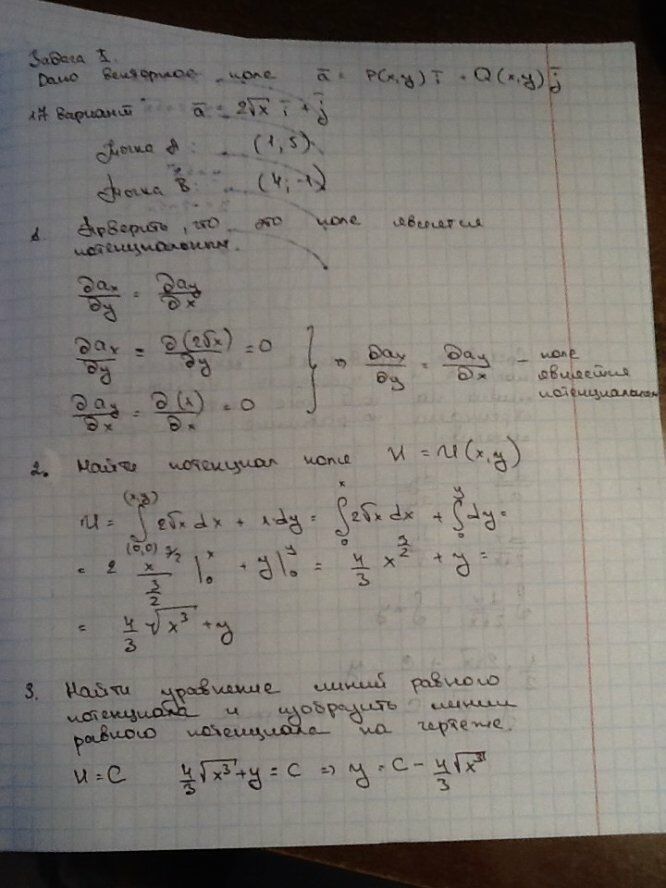 Задача 1.
Дано векторное поле a̅ = P(x,y) i̅ + Q(x,y) j̅
17 вариант a̅ = 2√x i̅ + j̅
Точка A: (1, 5)
Точка B: (4; -1)
1. Проверить, что это поле является
потенциальным.
∂ax/∂y = ∂ay/∂x
∂ax/∂y = ∂(2√x)/∂y = 0
∂ay/∂x = ∂(1)/∂x = 0 } ⇒ ∂ax/∂y = ∂ay/∂x – поле является потенциальным
2. Найти потенциал поля U = U(x,y)
U = ∫(0,0)(x,y) 2√x dx + 1·dy = ∫0x 2√x dx + ∫0y dy =
= 2 x^(3/2)/(3/2) |0x + y|0y = 4/3 x^(3/2) + y =
= 4/3 √x³ + y
3. Найти уравнение линий равного
потенциала и изобразить линии
равного потенциала на чертеже.
U = C 4/3 √x³ + y = C ⇒ y = C - 4/3 √x³